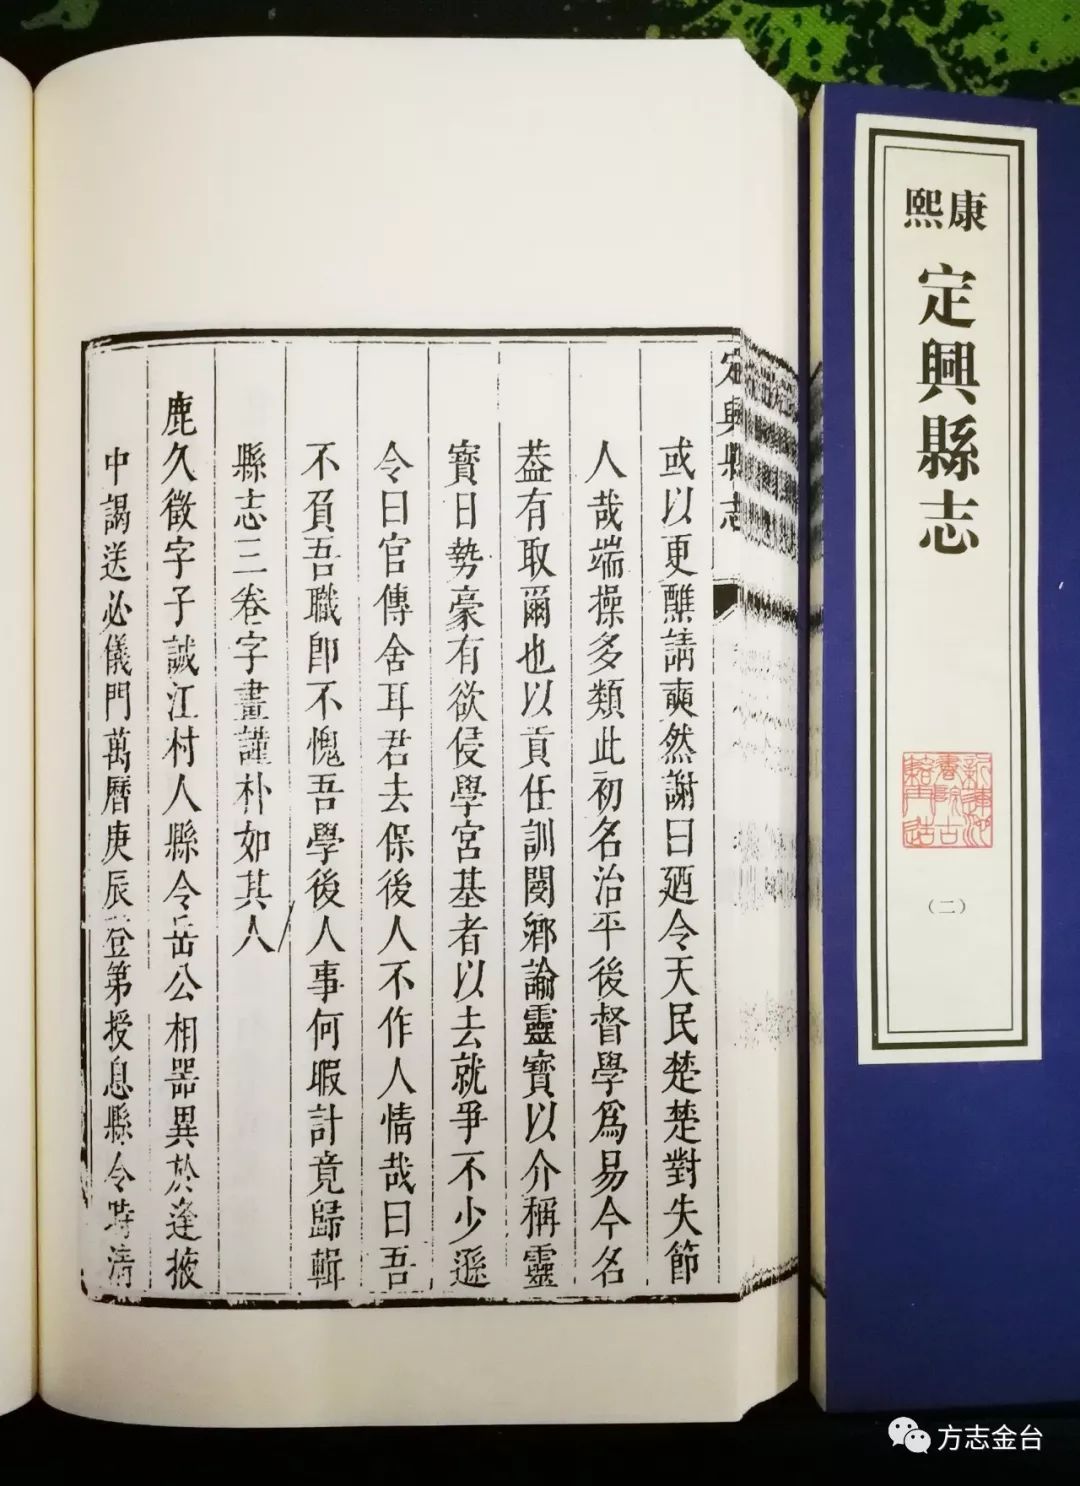 定興縣志
或以更醮請奭然謝曰廼令天民楚楚對失節
人哉端操多類此初名治平後督學爲易今名
葢有取爾也以貢任訓閿鄉諭靈寶以介稱靈
寶日勢豪有欲侵學宮基者以去就爭不少遜
令曰官傳舍耳君去保後人不作人情哉曰吾
不負吾職卽不愧吾學後人事何暇計竟歸輯
縣志三卷字畫謹朴如其人
鹿久徵字子誠江村人縣令岳公相器異於逢掖
中謁送必儀門萬曆庚辰登第授息縣令時清
康熙
定興縣志
(二)
方志金台